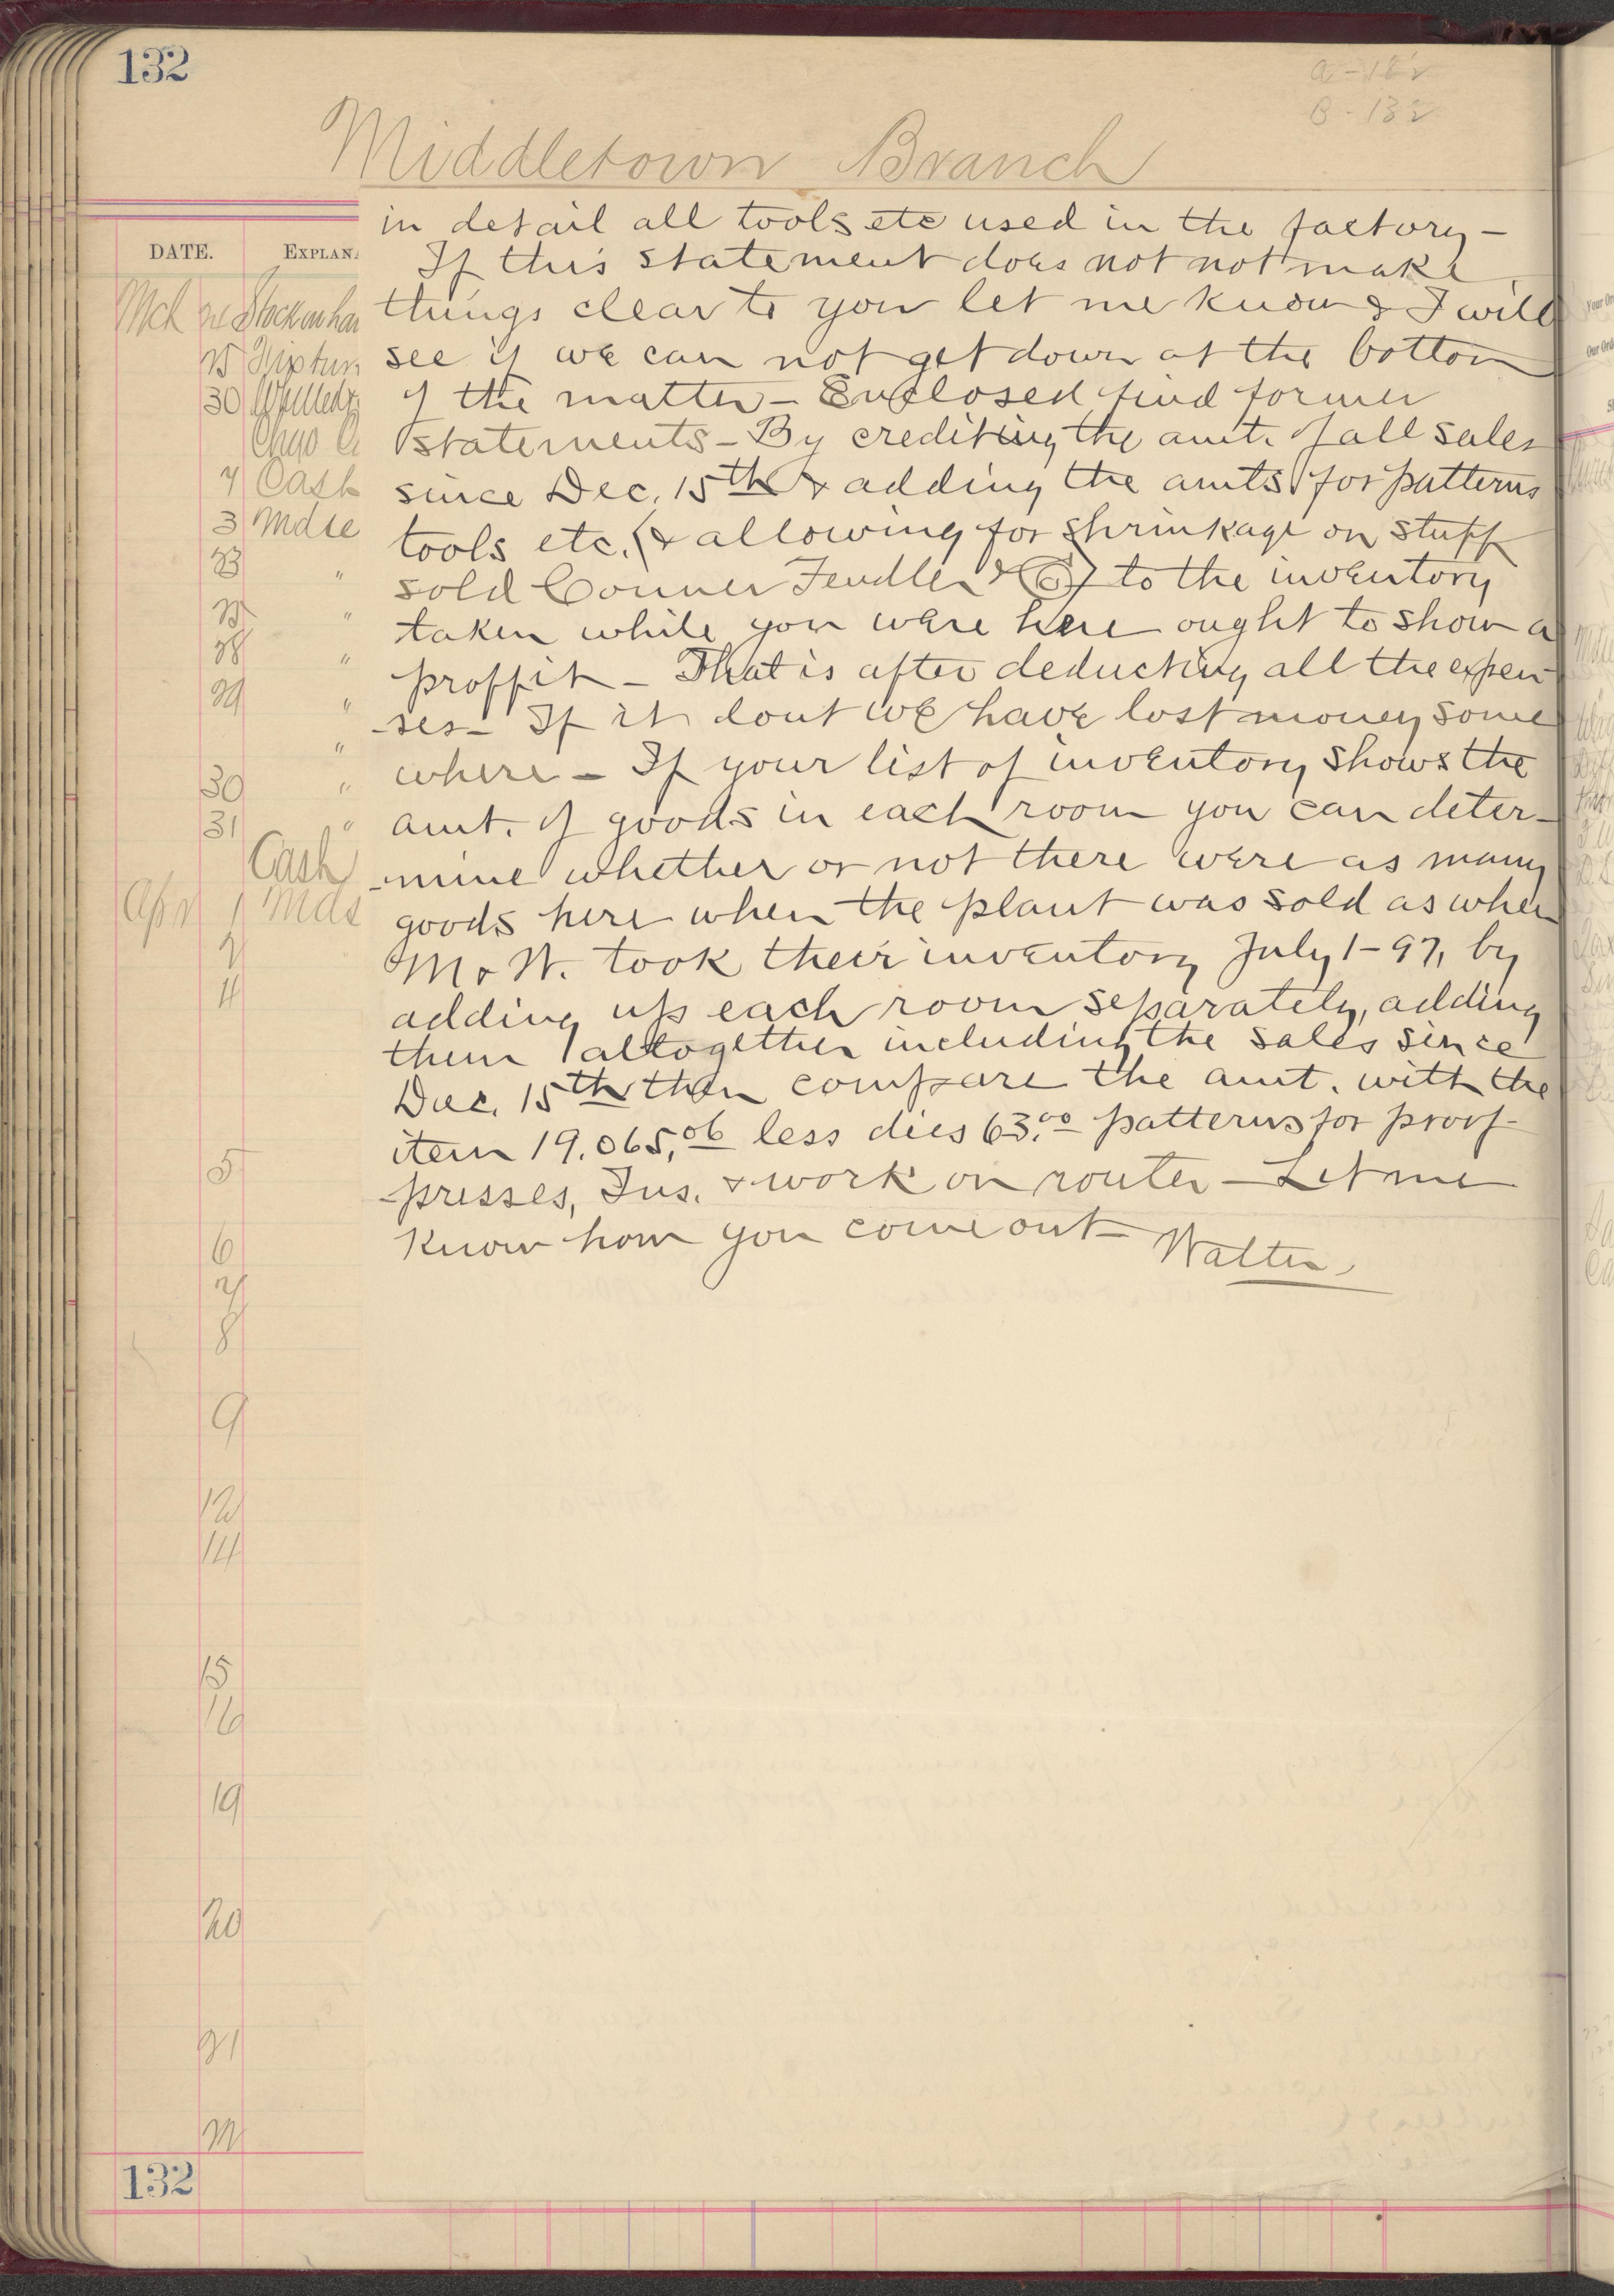 132
a - 132
B - 132
Middletown Branch
DATE.
EXPLANA
Mch
Stock on han
30
Cash
3 Mdse
23 "
25 "
28 "
29 "
"
30 "
31 "
Cash
Apr 1 Mds
2
4
5
6
7
8
9
12
14
15
16
19
20
21
22
132
in detail all tools etc used in the factory –
If this statement does not not make
things clear to you let me know & I will
see if we can not get down at the bottom
of the matter – Enclosed find former
statements – By crediting the amt. of all sales
since Dec. 15th & adding the amts for patterns
tools etc. (& allowing for shrinkage on stuff
sold Conner Fendler & Co) to the inventory
taken while you were here ought to show a
proffit – That is after deducting all the expen-
-ses – If it dont we have lost money some
where – If your list of inventory shows the
amt. of goods in each room you can deter-
-mine whether or not there were as many
goods here when the plant was sold as when
M & W. took their inventory July 1-97, by
adding up each room separately, adding
them altogether including the sales since
Dec. 15th then compare the amt. with the
item 19.065.06 less dies 63.00 patterns for proof-
-presses, Ins. & work on router – Let me
know how you come out – Walter